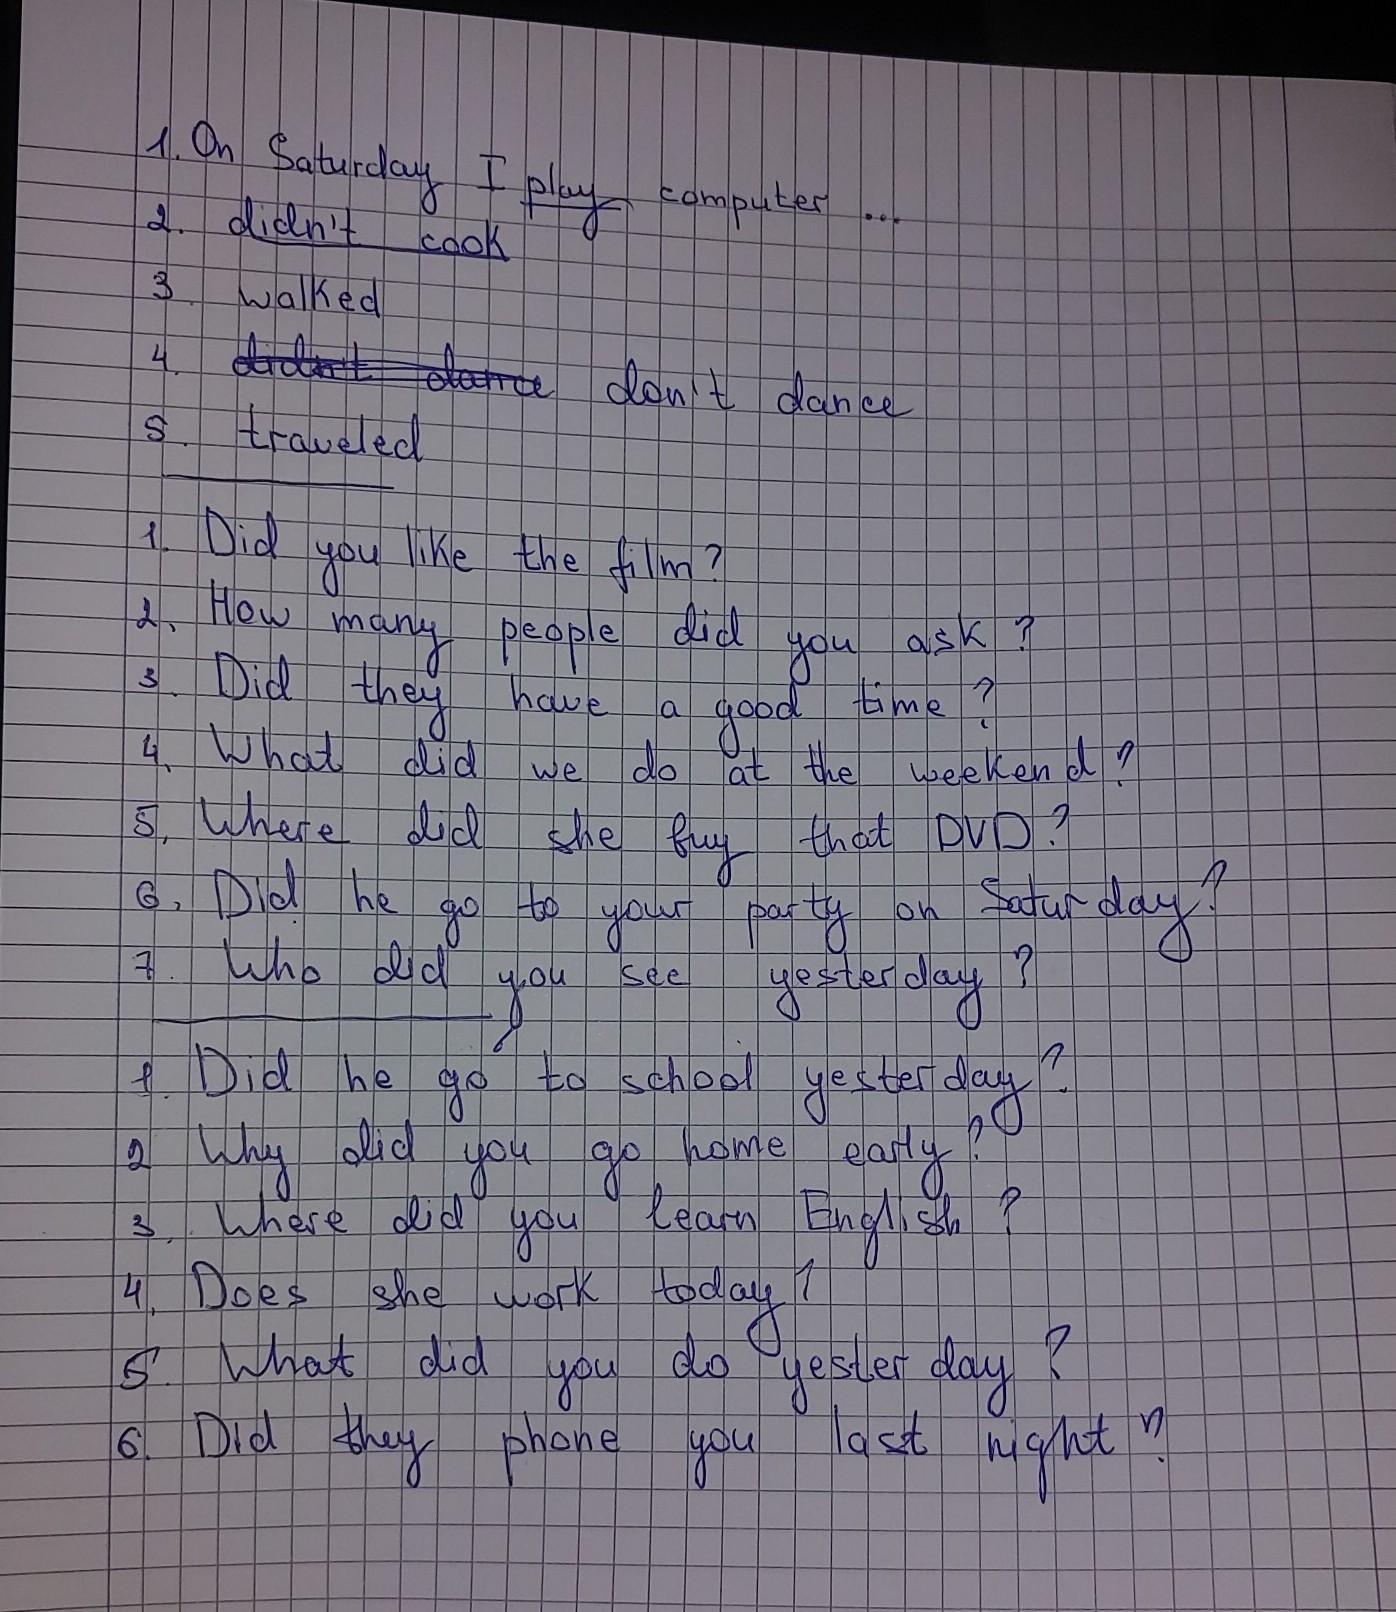 1. On Saturday I play computer ...
2. didn't cook
3. walked
4. didn't dance don't dance
5. traveled
1. Did you like the film?
2. How many people did you ask?
3. Did they have a good time?
4. What did we do at the weekend?
5. Where did she buy that DVD?
6. Did he go to your party on Saturday?
7. Who did you see yesterday?
1. Did he go to school yesterday?
2 Why did you go home early?
3. Where did you learn English?
4. Does she work today?
5. What did you do yesterday?
6. Did they phone you last night?